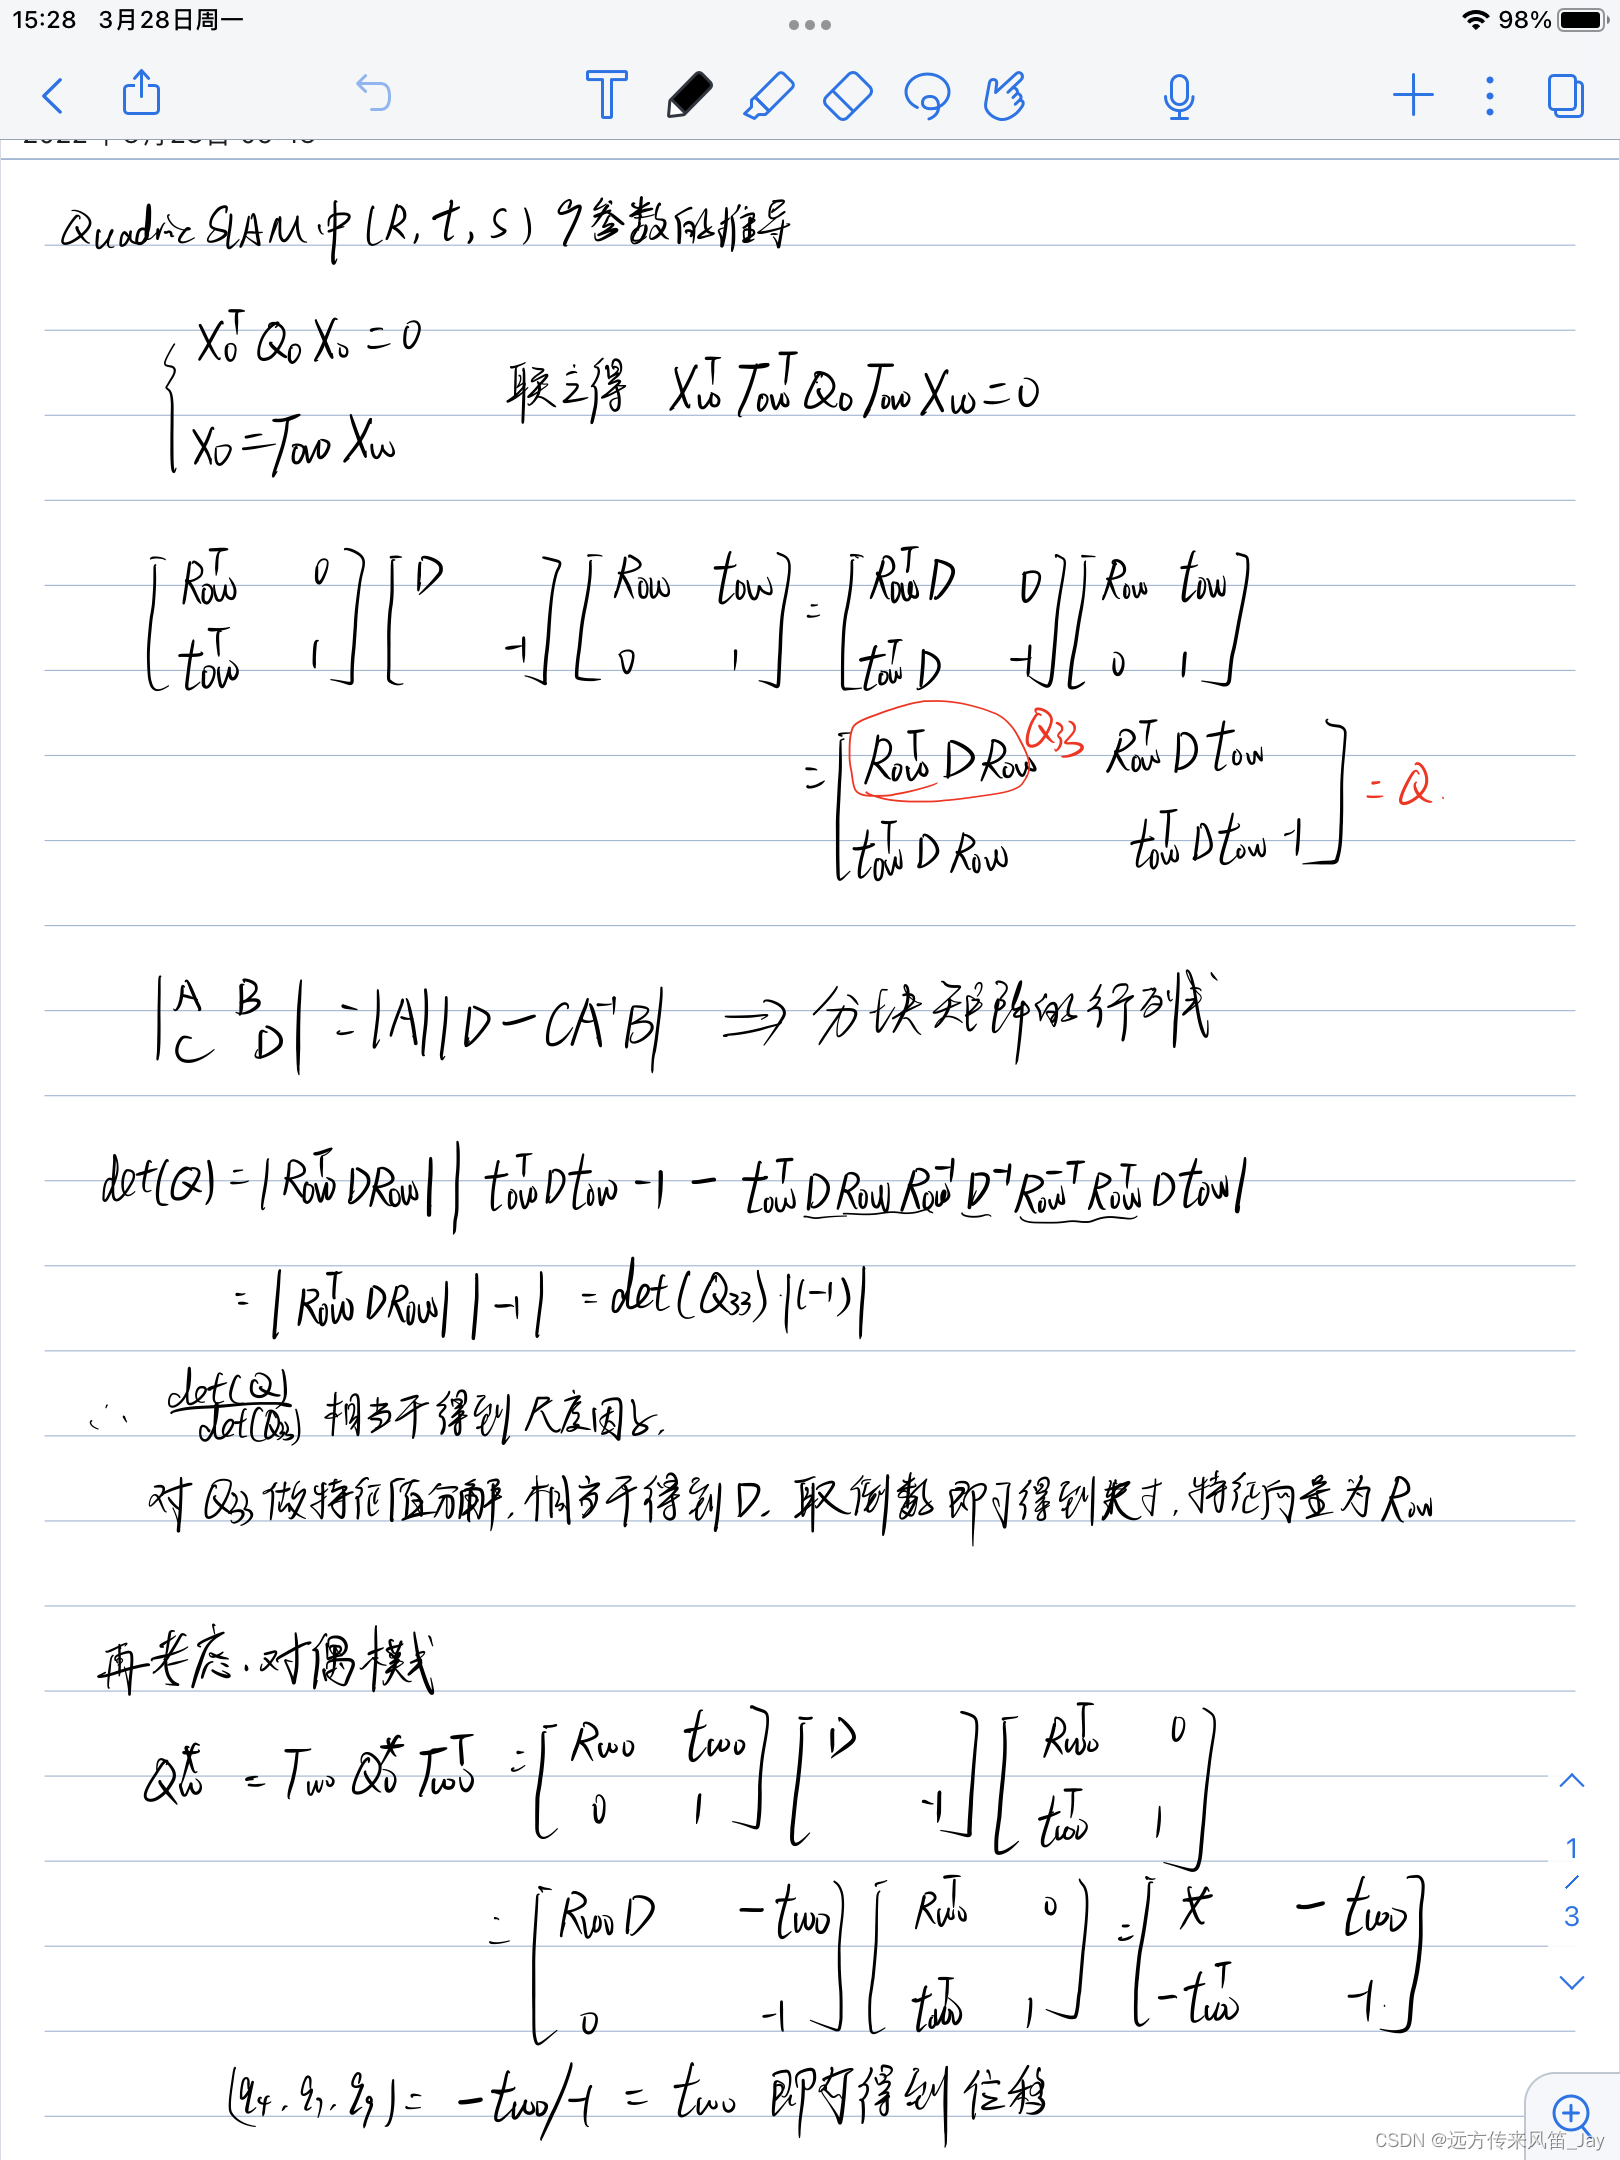 15:28 3月28日周一
98%
T
Quadric SLAM 中 (R, t, s) 9参数的推导
X₀ᵀ Q₀ X₀ = 0
X₀ = T_ow X_w
联立得 X_wᵀ T_owᵀ Q₀ T_ow X_w = 0
[R_owᵀ 0; t_owᵀ 1] [D ; -1] [R_ow t_ow; 0 1] = [R_owᵀ D 0; t_owᵀ D -1] [R_ow t_ow; 0 1]
= [R_owᵀ D R_ow R_owᵀ D t_ow; t_owᵀ D R_ow t_owᵀ D t_ow -1] = Q.
Q₃₃
|A B; C D| = |A| |D - CA⁻¹B| ⇒ 分块矩阵的行列式
det(Q) = |R_owᵀ D R_ow| | t_owᵀ D t_ow -1 - t_owᵀ D R_ow R_ow⁻¹ D⁻¹ R_ow⁻ᵀ R_owᵀ D t_ow|
= |R_owᵀ D R_ow| |-1| = det(Q₃₃)·|(-1)|
∴ det(Q)/det(Q₃₃) 相当于得到尺度因子.
对 Q₃₃ 做特征值分解, 相当于得到 D. 取倒数即可得到尺寸, 特征向量为 R_ow
再考虑.对偶模式
Q_w* = T_wo Q₀* T_woᵀ = [R_wo t_wo; 0 1] [D ; -1] [R_woᵀ 0; t_woᵀ 1]
= [R_wo D -t_wo; 0 -1] [R_woᵀ 0; t_woᵀ 1] = [* -t_wo; -t_woᵀ -1.]
(q₄, q₇, q₉) = -t_wo/-1 = t_wo 即可得到位移
1/3
CSDN @远方传来风笛_Jay